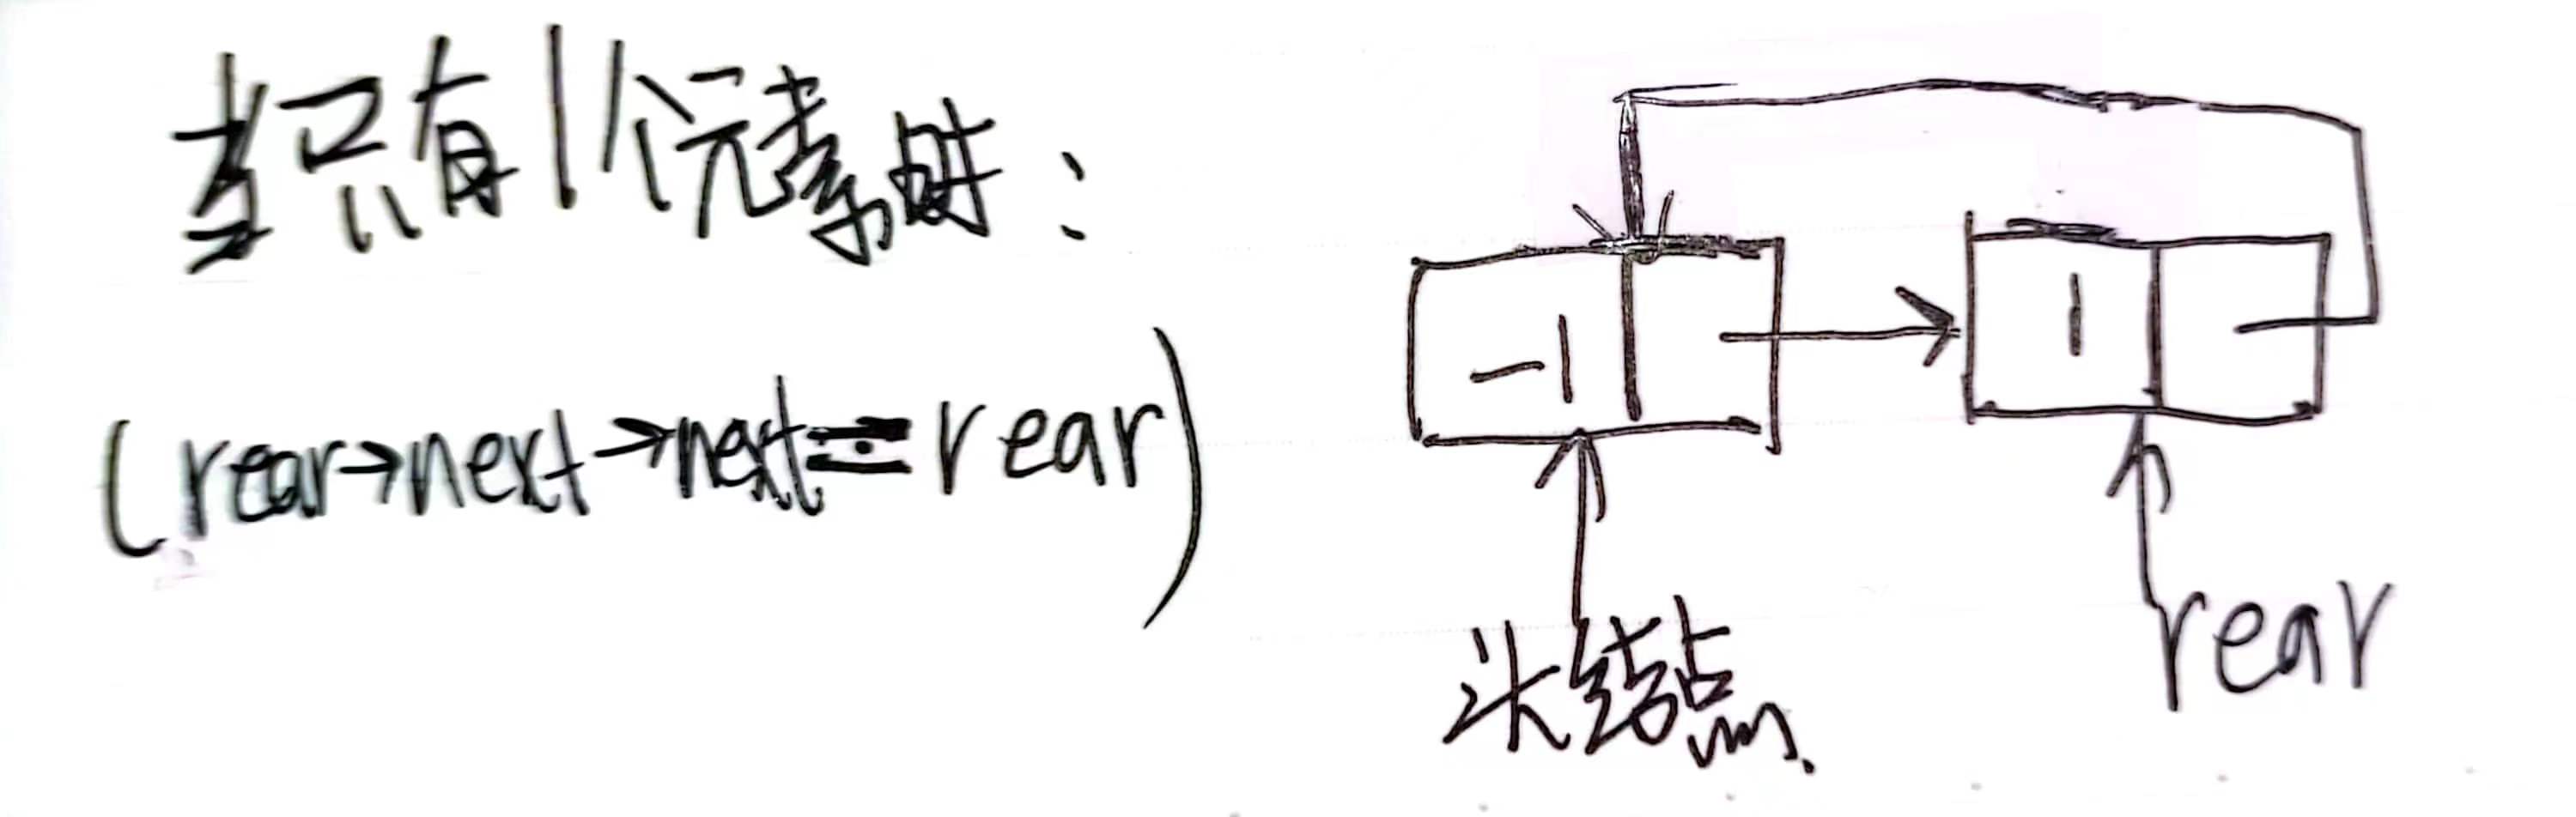 当只有1个元素时：
(rear→next→next==rear)
-1
1
头结点
rear